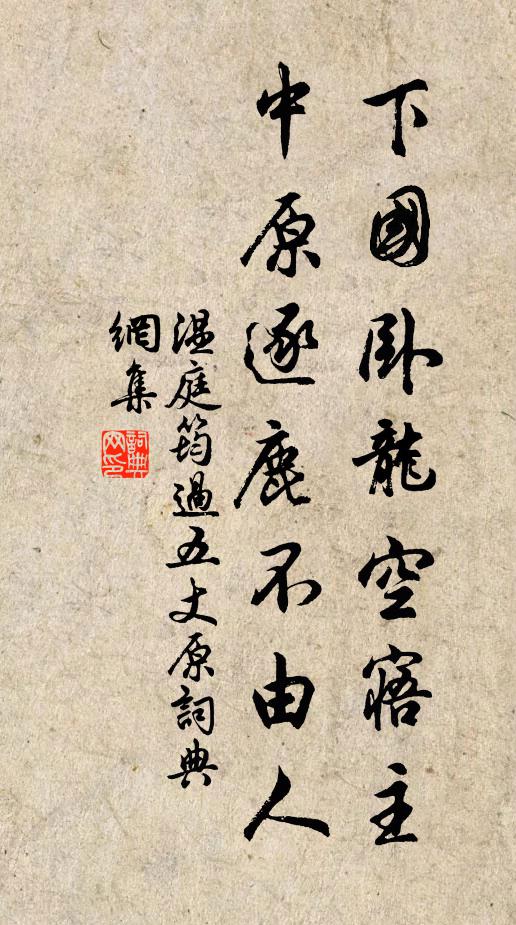 下國卧龍空寤主
中原逐鹿不由人
溫庭筠過五丈原詞典
網集
詞典
网印